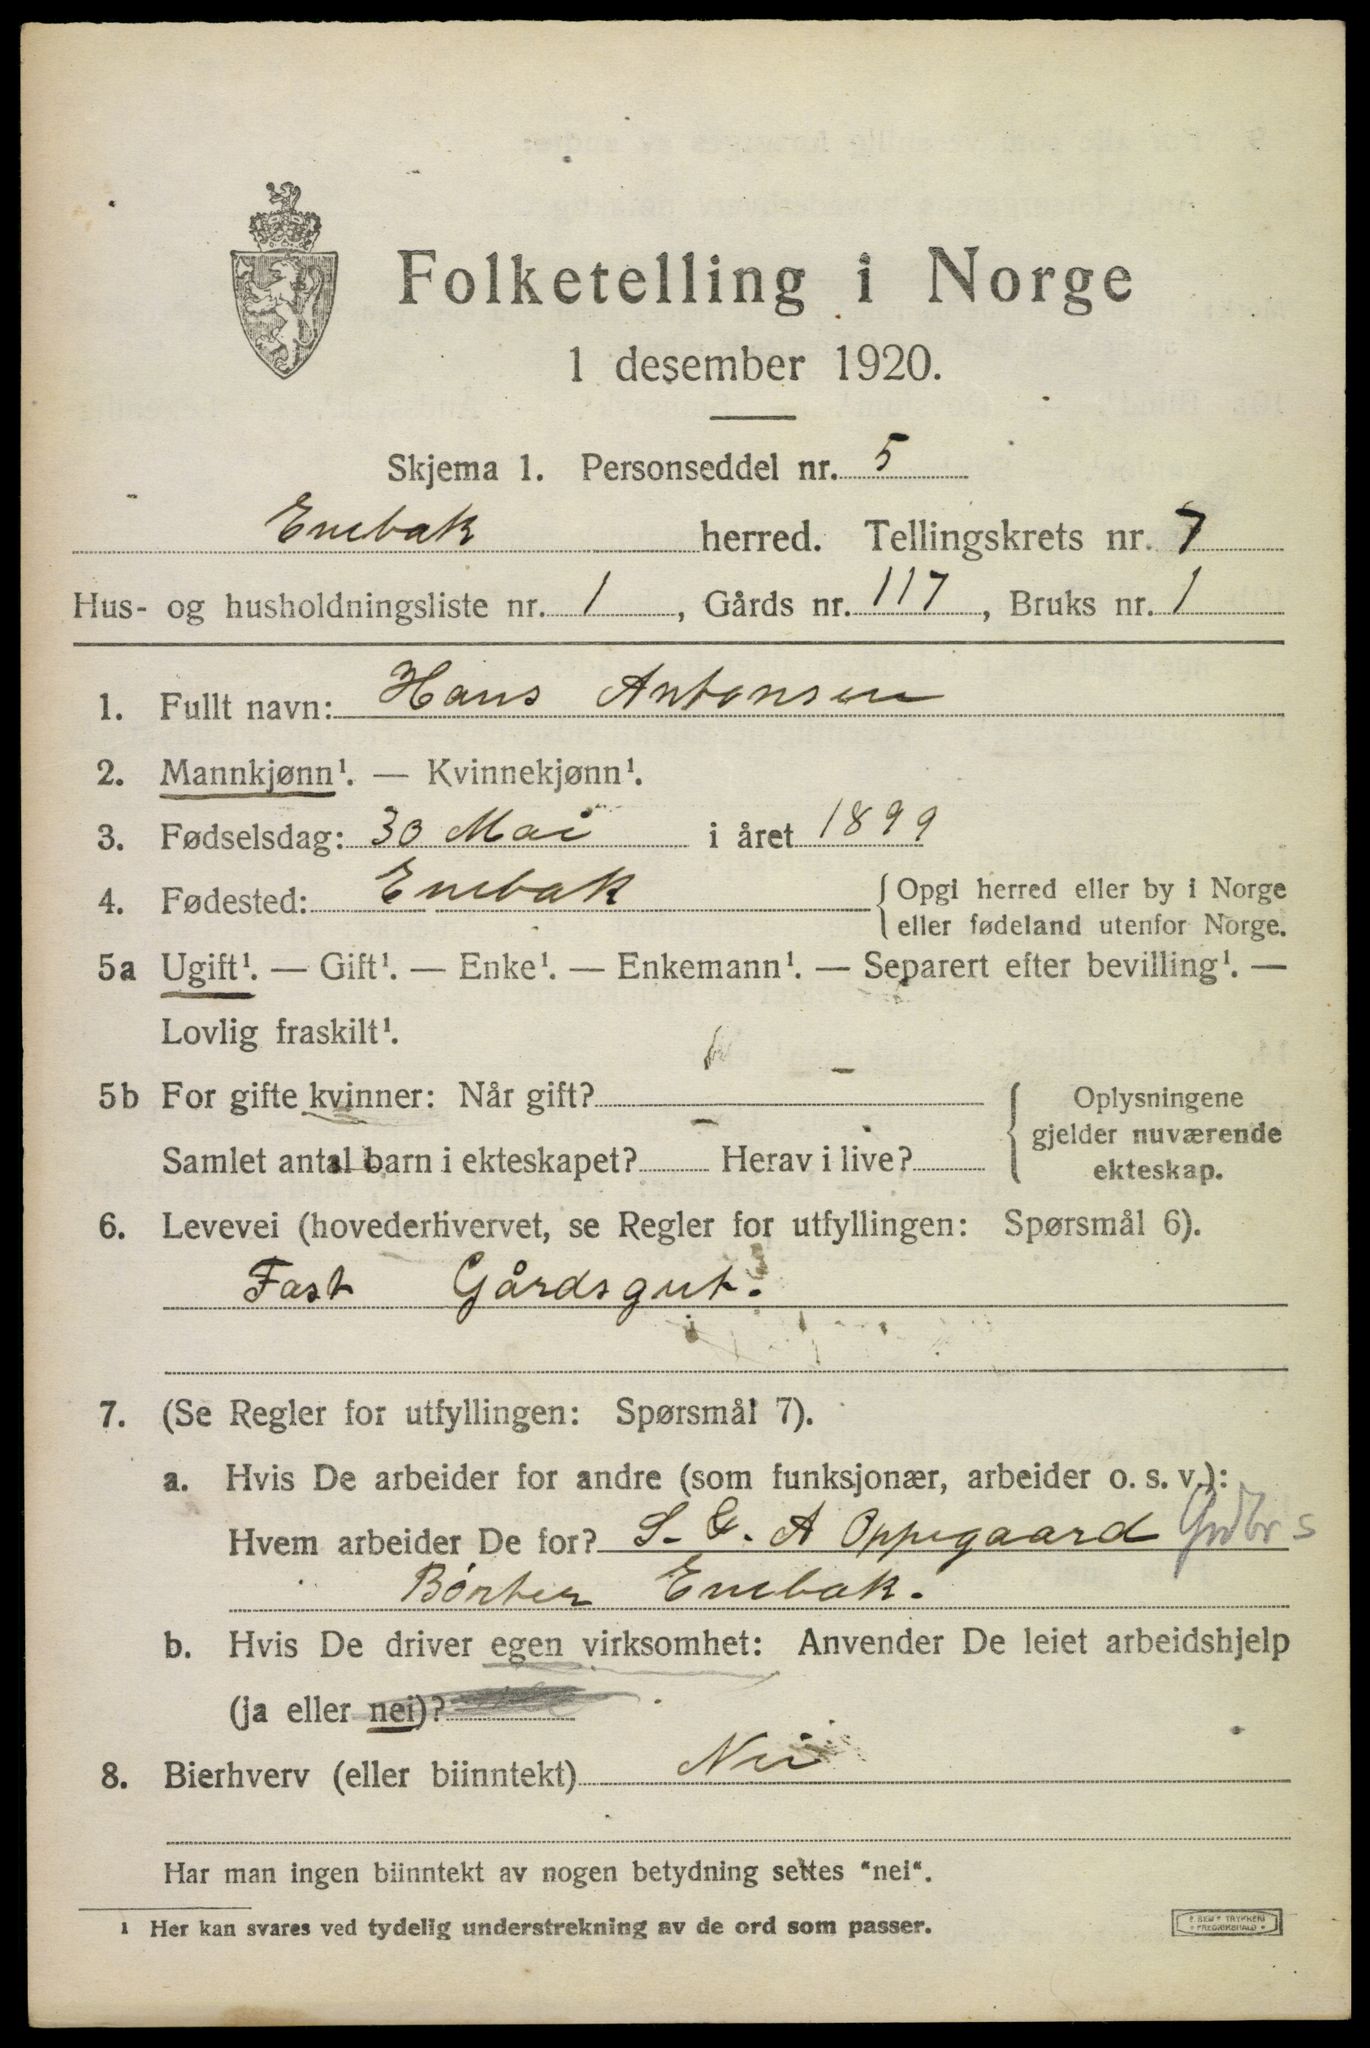 Folketelling i Norge
1 desember 1920.
Skjema 1. Personseddel nr. 5
Enebak herred. Tellingskrets nr. 7
Hus- og husholdningsliste nr. 1, Gårds nr. 117, Bruks nr. 1
1. Fullt navn: Hans Antonsen
2. Mannkjønn¹. — Kvinnekjønn¹.
3. Fødselsdag: 30 Mai i året 1899
4. Fødested: Enebak
{ Opgi herred eller by i Norge
eller fødeland utenfor Norge.
5a Ugift¹. — Gift¹. — Enke¹. — Enkemann¹. — Separert efter bevilling¹. —
Lovlig fraskilt¹.
5b For gifte kvinner: Når gift? —
Samlet antal barn i ekteskapet? — Herav i live?
{ Oplysningene
gjelder nuværende
ekteskap.
6. Levevei (hovederhvervet, se Regler for utfyllingen: Spørsmål 6).
Fast Gårdsgut.
7. (Se Regler for utfyllingen: Spørsmål 7).
a. Hvis De arbeider for andre (som funksjonær, arbeider o. s. v.):
Hvem arbeider De for? S. G. A Oppegaard Grdbr s
Børter Enebak.
b. Hvis De driver egen virksomhet: Anvender De leiet arbeidshjelp
(ja eller nei)?
8. Bierhverv (eller biinntekt) Nei
Har man ingen biinntekt av nogen betydning settes "nei".
1 Her kan svares ved tydelig understrekning av de ord som passer.
TRYKKERI
FREDRIKSHALD